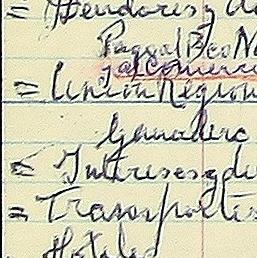 = Acudores y d
Pagya Bco Na
y al Comercio
= Union Region
Ganadera
= Intereses y de
= Transportes
Hoteles